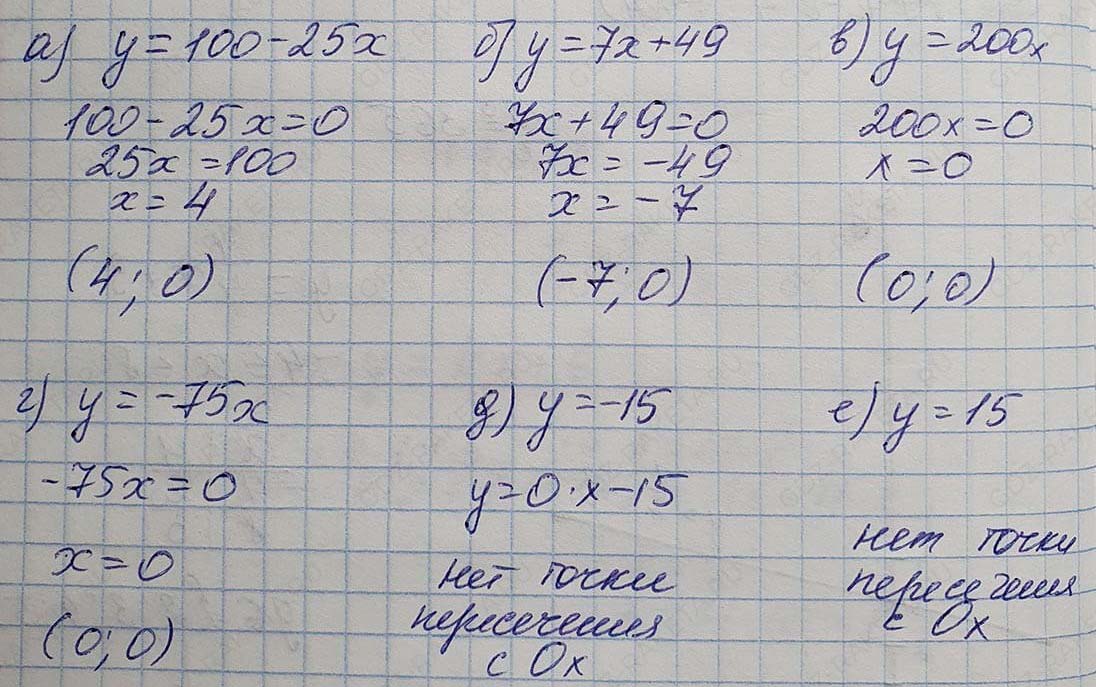 а) y = 100 - 25x
100 - 25x = 0
25x = 100
x = 4
(4; 0)
б) y = 7x + 49
7x + 49 = 0
7x = -49
x = -7
(-7; 0)
в) y = 200x
200x = 0
x = 0
(0; 0)
г) y = -75x
-75x = 0
x = 0
(0; 0)
д) y = -15
y = 0 · x - 15
нет точки
пересечения
с Ox
е) y = 15
нет точки
пересечения
с Ox